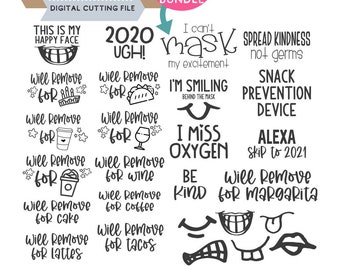 DIGITAL CUTTING FILE
BUNDLE
THIS IS MY
HAPPY FACE
2020
UGH!
I can't
mask
my excitement
SPREAD KINDNESS
not germs
will Remove
for
will Remove
for
I'M SMILING
BEHIND THE MASK
SNACK
PREVENTION
DEVICE
will Remove
for
will Remove
for
I MISS
OXYGEN
ALEXA
skip to 2021
will Remove
for
will Remove
for wine
BE
KIND
will Remove
for margarita
will Remove
for cake
will Remove
for coffee
will Remove
for lattes
will Remove
for tacos